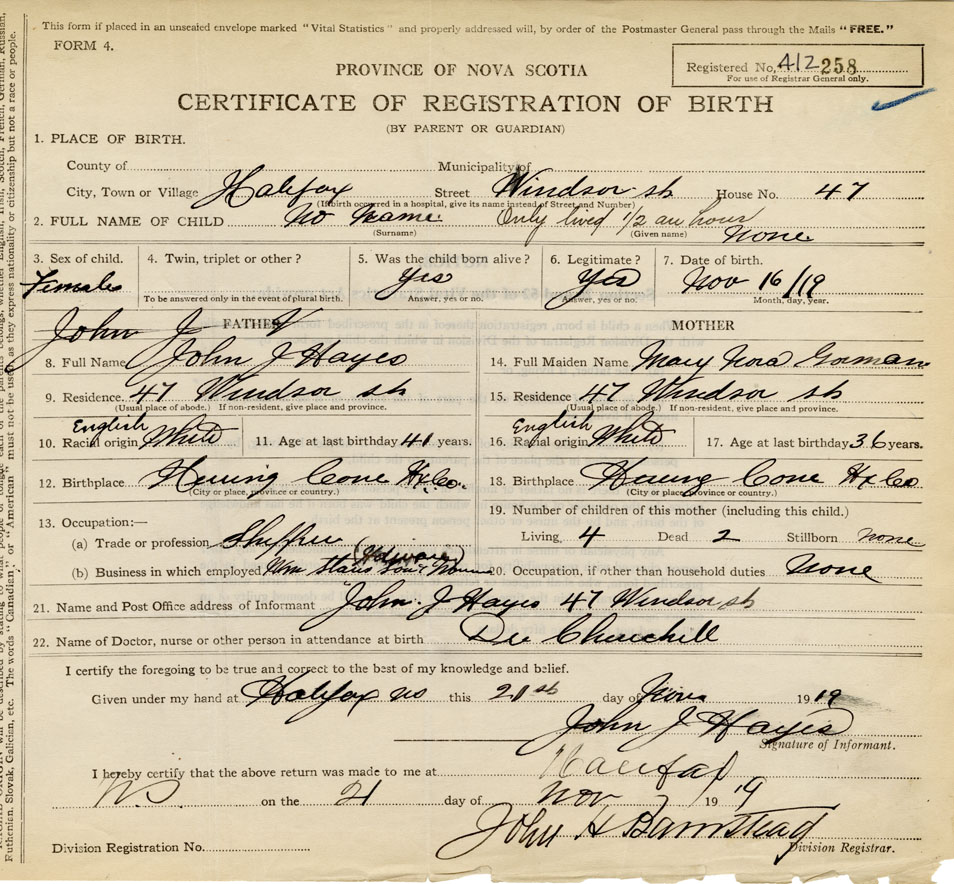 This form if placed in an unsealed envelope marked "Vital Statistics" and properly addressed will, by order of the Postmaster General pass through the Mails "FREE."
FORM 4.
Registered No. 412258
For use of Registrar General only.
PROVINCE OF NOVA SCOTIA
CERTIFICATE OF REGISTRATION OF BIRTH
(BY PARENT OR GUARDIAN)
1. PLACE OF BIRTH.
County of Municipality of
City, Town or Village Halifax Street Windsor st House No. 47
(If birth occurred in a hospital, give its name instead of Street and Number)
2. FULL NAME OF CHILD No Name Only lived 1/2 an hour None
(Surname) (Given name)
3. Sex of child. 4. Twin, triplet or other? 5. Was the child born alive? 6. Legitimate? 7. Date of birth.
Female Yes Yes Nov 16/19
To be answered only in the event of plural birth. Answer, yes or no. Answer, yes or no. Month, day, year.
John J FATHER MOTHER
8. Full Name John J Hayes 14. Full Maiden Name Mary Nora Gorman
9. Residence. 47 Windsor st 15. Residence 47 Windsor st
(Usual place of abode.) If non-resident, give place and province. (Usual place of abode.) If non-resident, give place and province.
English English
10. Racial origin White 11. Age at last birthday 41 years. 16. Racial origin White 17. Age at last birthday 36 years.
12. Birthplace Herring Cove Hx Co. 18. Birthplace Herring Cove Hx Co
(City or place, province or country.) (City or place, province or country.)
13. Occupation:— 19. Number of children of this mother (including this child.)
(a) Trade or profession Shipper Living 4 Dead 2 Stillborn none
(b) Business in which employed Wm Stairs Son & Morrow (Hardware) 20. Occupation, if other than household duties None
21. Name and Post Office address of Informant John J Hayes 47 Windsor st
22. Name of Doctor, nurse or other person in attendance at birth Dr Churchill
I certify the foregoing to be true and correct to the best of my knowledge and belief.
Given under my hand at Halifax NS this 21st day of Nov 1919
John J Hayes
Signature of Informant.
I hereby certify that the above return was made to me at Halifax
NS on the 21 day of Nov 1919
John H Barnstead
Division Registration No. Division Registrar.